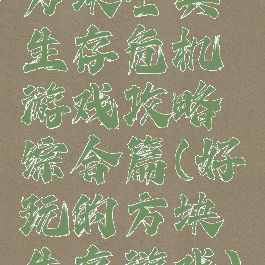 生存危机
游戏攻略
综合篇(好
玩的方块
生存游戏)